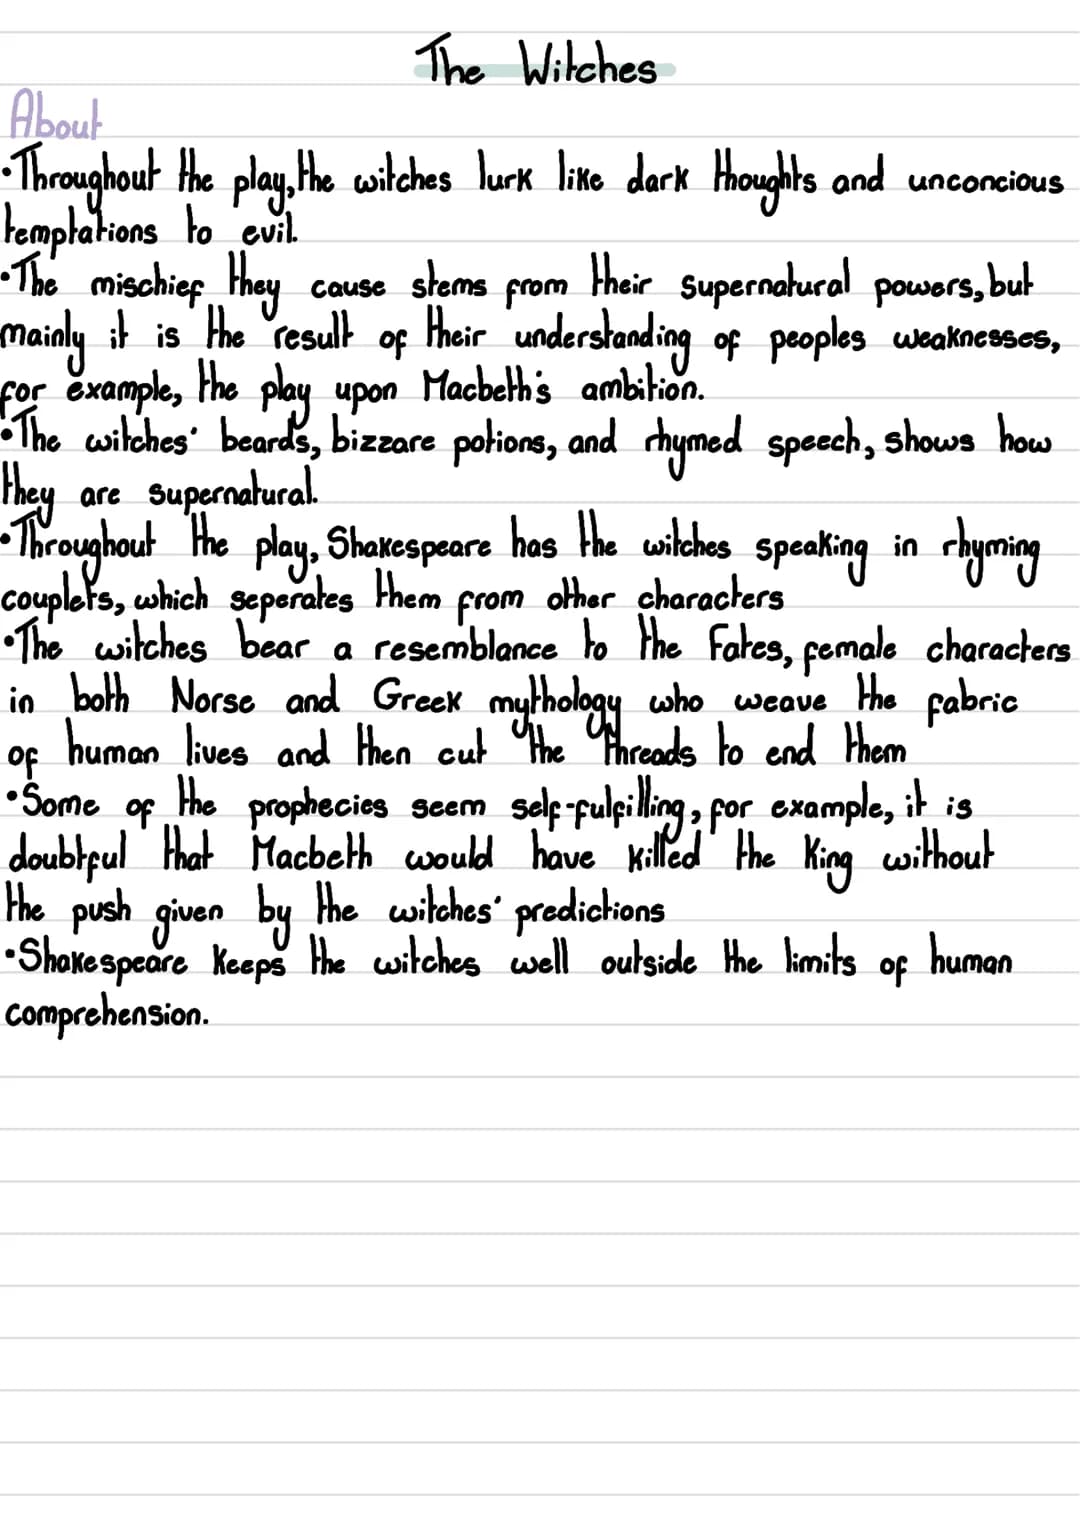 The Witches
About
•Throughout the play, the witches lurk like dark thoughts and unconcious
temptations to evil.
•The mischief they cause stems from their supernatural powers, but
mainly it is the result of their understanding of peoples weaknesses,
for example, the play upon Macbeth's ambition.
•The witches' beards, bizzare potions, and rhymed speech, shows how
they are supernatural.
•Throughout the play, Shakespeare has the witches speaking in rhyming
couplets, which seperates them from other characters
•The witches bear a resemblance to the Fates, female characters
in both Norse and Greek mythology who weave the fabric
of human lives and then cut the threads to end them
•Some of the prophecies seem self-fulfilling, for example, it is
doubtful that Macbeth would have killed the King without
the push given by the witches' predictions
•Shakespeare keeps the witches well outside the limits of human
comprehension.